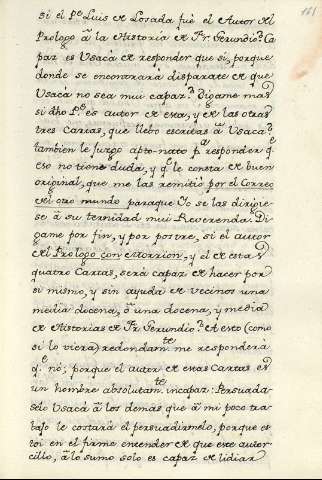 181
si el Pe Luis de Losada fue el Autor del
Prologo â la Historia de Fr. Gerundio? Ca
paz es Usacâ de responder que si, porque
donde se encontrarà disparate de que
Usacâ no sea mui capaz? Digame mas
si dho Pe es autor de esta, y de las otras
tres Cartas, que llebo escritas â Usacâ?
tambien le juzgo apto-nato pa responder qe
eso no tiene duda, y qe le consta de buen
original, que me las remitiò por el Correo
del otro mundo paraque Yo se las dirigie
se â su ternidad mui Reverenda? Di
game por fin, y por postre, si el autor
del Prologo con Morrion, y el de estas
quatro Cartas, serà capaz de hacer por
si mismo, y sin ayuda de vecinos una
media docena, ô una docena, y media
de Historias de Fr. Gerundio? A esto (como
si lo viera) redondamte me responderà
qe nó; porque el autor de esas Cartas es
un hombre absolutamte incapaz: Persuada
selo Usacâ â los demas que â mi poco tra
bajo le costarà el persuadirmelo, porque es
toi en el firme entender de que este autor
cillo, â lo sumo solo es capaz de lidiar